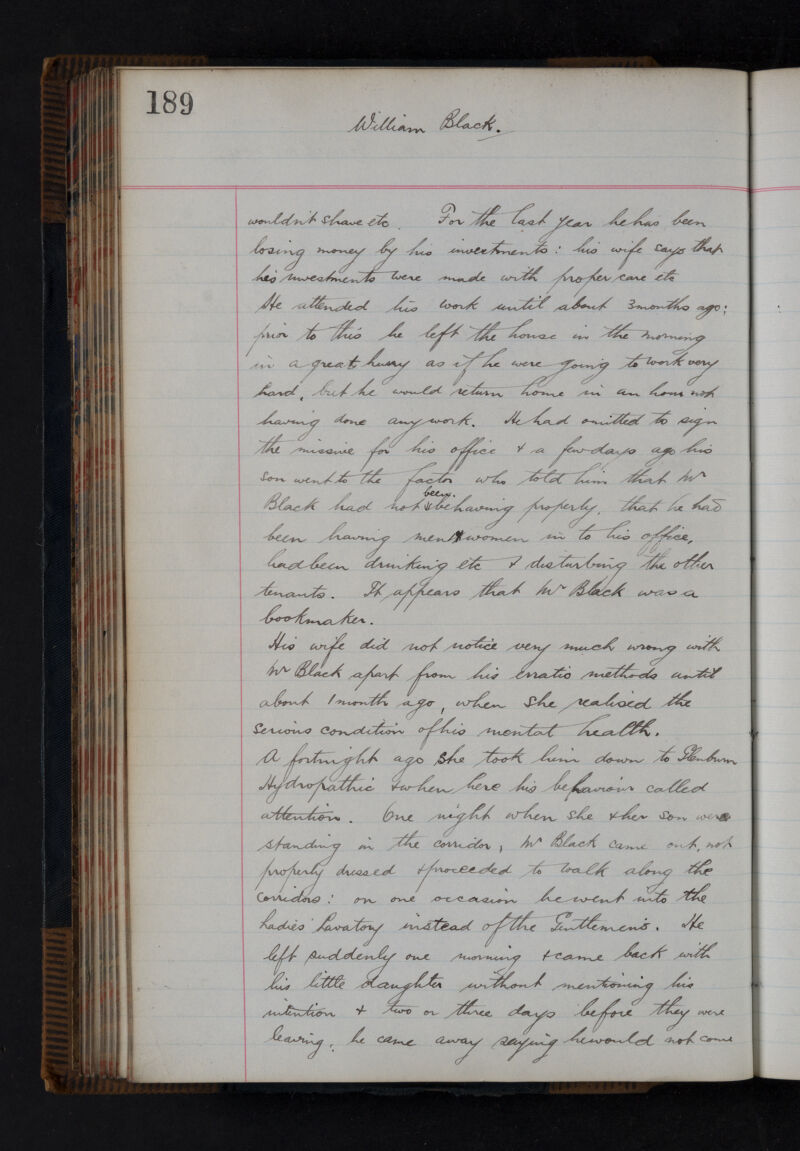 189
William Black.
wouldn't shave etc. For the last year he has been
losing money by his investments: his wife says that
his investments were made with proper care etc
He attended his work until about 3 months ago:
prior to this he left the house in the morning
in a great hurry as if he were going to work very
hard, but he would return home in an hour not
having done any work. He had omitted to sign
the missive for his office & a few days ago his
son went to the factor who told him that Mr
Black had not been behaving properly, that he had
been having men & women in to his office,
had been drinking etc & disturbing the other
tenants. It appears that Mr Black was a
bookmaker.
His wife did not notice very much wrong with
Mr Black apart from his erratic methods until
about 1 month ago, when she realised the
serious condition of his mental health.
A fortnight ago she took him down to Glenburn
Hydropathic & when here his behaviour called
attention. One night when she & her son were
standing in the corridor, Mr Black came out, not
properly dressed & proceeded to walk along the
corridors: on one occasion he went into the
Ladies' Lavatory instead of the Gentlemens. He
left suddenly one morning & came back with
his little daughter without mentioning his
intention & two or three days before they were
leaving, he came away saying he would not come